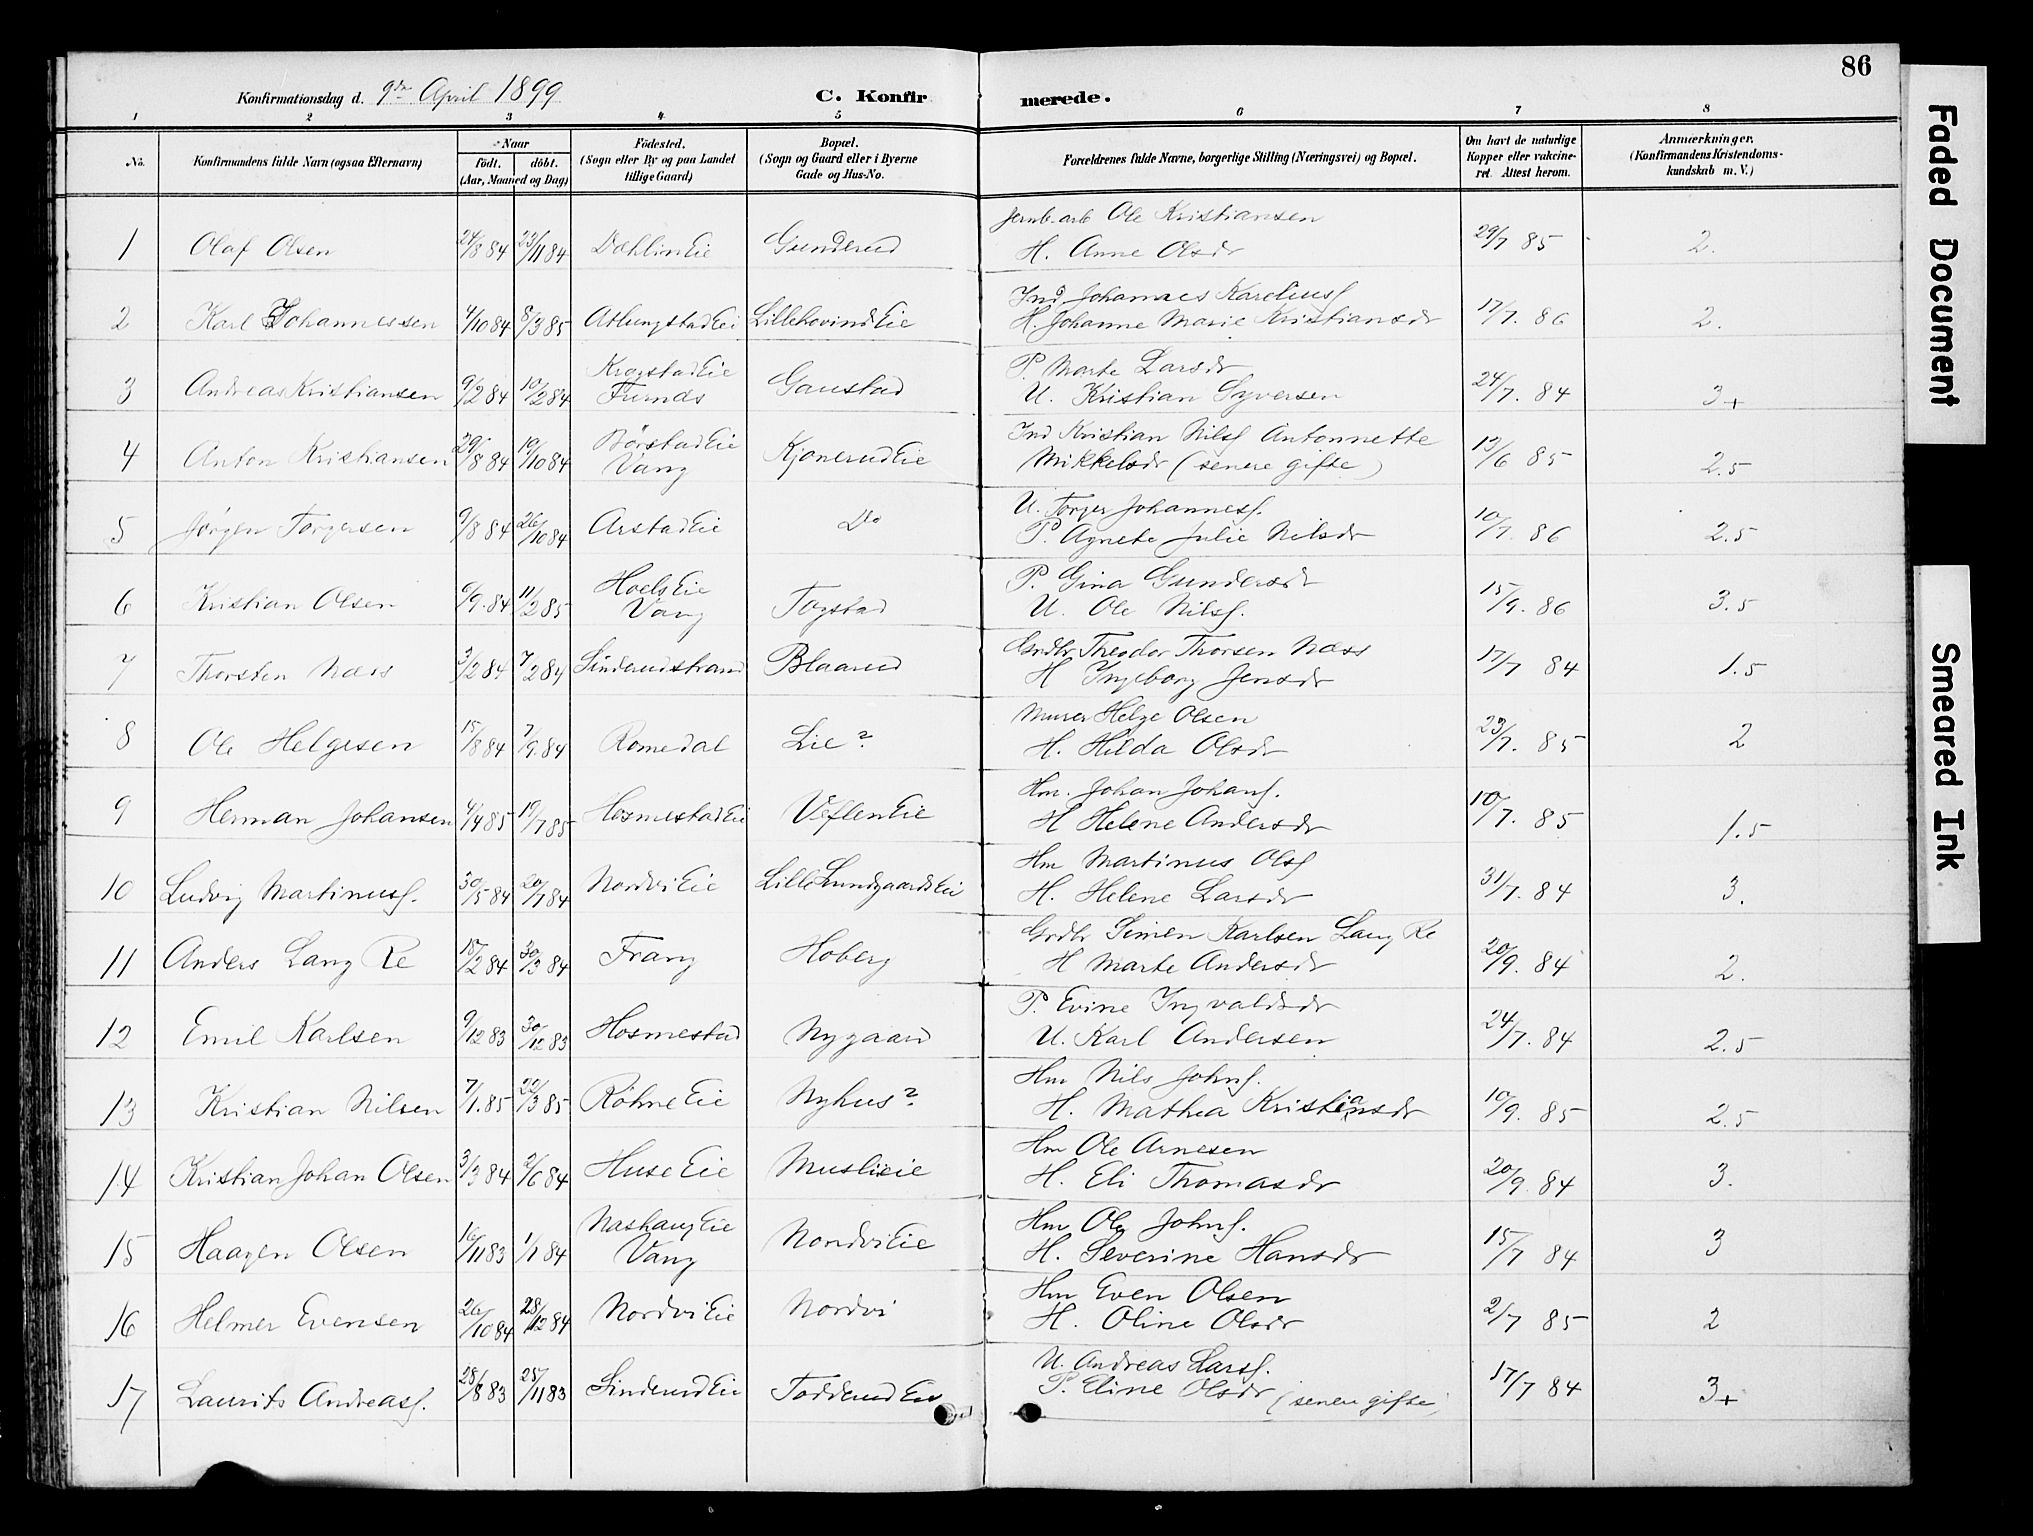 86
Konfirmationsdag d. 9de April 1899
C. Konfirmerede.
1 2 3 4 5 6 7 8
No. Konfirmandens fulde Navn (ogsaa Efternavn) Naar født. døbt. (Aar, Maaned og Dag) Fødested. (Sogn eller By og paa Landet tillige Gaard) Bopæl. (Sogn og Gaard eller i Byerne Gade og Hus-No. Forældrenes fulde Navne, borgerlige Stilling (Næringsvei) og Bopæl. Om havt de naturlige Kopper eller vakcineret. Attest herom. Anmærkninger. (Konfirmandens Kristendomskundskab m. V.)
1 Olaf Olsen 24/8 84 23/11 84 Dæhlin Eie Gunderud Jernb.arb Ole Kristiansen
H. Anne Olsdr 29/7 85 2.
2 Karl Johannessen 4/10 84 8/3 85 Atlungstad Ei Lillehovind Eie Ind Johannes Karelius
H. Johanne Marie Kristiansdr 17/7. 86 2.
3 Andreas Kristiansen 9/2 84 10/2 84 Kragstad Eie Furnds Gaustad P. Marte Larsdr
U. Kristian Syversen 24/7. 84 3+
4 Anton Kristiansen 29/8 84 19/10 84 Børstad Eie Vang Kjonerud Eie Ind Kristian Nils Antonnette
Mikkelsdr (senere gifte) 13/6 85 2.5
5 Jørgen Torgersen 9/8 84 26/10 84 Arstad Eie Do U. Torger Johannes.
P. Agnete Julie Nilsdr 10/7. 86 2.5
6 Kristian Olsen 6/9. 84 11/2 85 Hoels Eie Vang Togstad P. Gina Gundersdr
U. Ole Nils. 15/9. 86 3.5
7 Thorsten Næss 3/2 84 7/2 84 Sinderudstrand Blaarud Grdbr Theodor Thorsen Næss
H Ingeborg Jensdr 17/7 84 1.5
8 Ole Helgesen 15/8 84 7/9. 84 Romedal Lie? Murer Helge Olsen
H. Hilda Olsdr 23/7. 85 2
9 Herman Johansen 4/4 85 19/7 85 Hosmestad Eie Veflen Eie Hm. Johan Johans.
H Helene Andersdr 10/7. 85 1.5
10 Ludvig Martinus. 30/5 84 20/7 84 Nordvi Eie Lille Lundgaards Eie Hm Martinus Ols
H. Helene Larsdr 31/7. 84 3.
11 Anders Lang Re 18/2 84 30/3 84 Frang Hoberg Grdbr Simen Karlsen Lang Re
H Marte Andersdr 20/9. 84 2.
12 Emil Karlsen 9/12 83 30/12 83 Hosmestad Nygaard P. Evine Ingvaldsdr
U. Karl Andersen 24/7. 84 2.5
13 Kristian Nilsen 7/1. 85 22/3 85 Røhne Eie Nyhus? Hm Nils Johns.
H. Mathea Kristiansdr 10/9. 85 2.5
14 Kristian Johan Olsen 3/3 84 2/6 84 Huse Eie Muslieie Hm Ole Arnesen
H. Eli Thomasdr 20/9. 84 3.
15 Haagen Olsen 16/11 83 1/1 84 Nashaug Eie Vang Nordvi Eie Hm Ole Johns.
H. Severine Hansdr 15/7 84 3
16 Helmer Evensen 26/10 84 28/12 84 Nordvi Eie Nordvi Hm Even Olsen
H. Oline Olsdr 2/7 85 2
17 Laurits Andreas. 28/8 83 25/11 83 Sinderud Eie Todderud Eie U. Andreas Lars.
P. Eline Olsdr (senere gifte) 17/7 84 3+
Faded Document
Smeared Ink